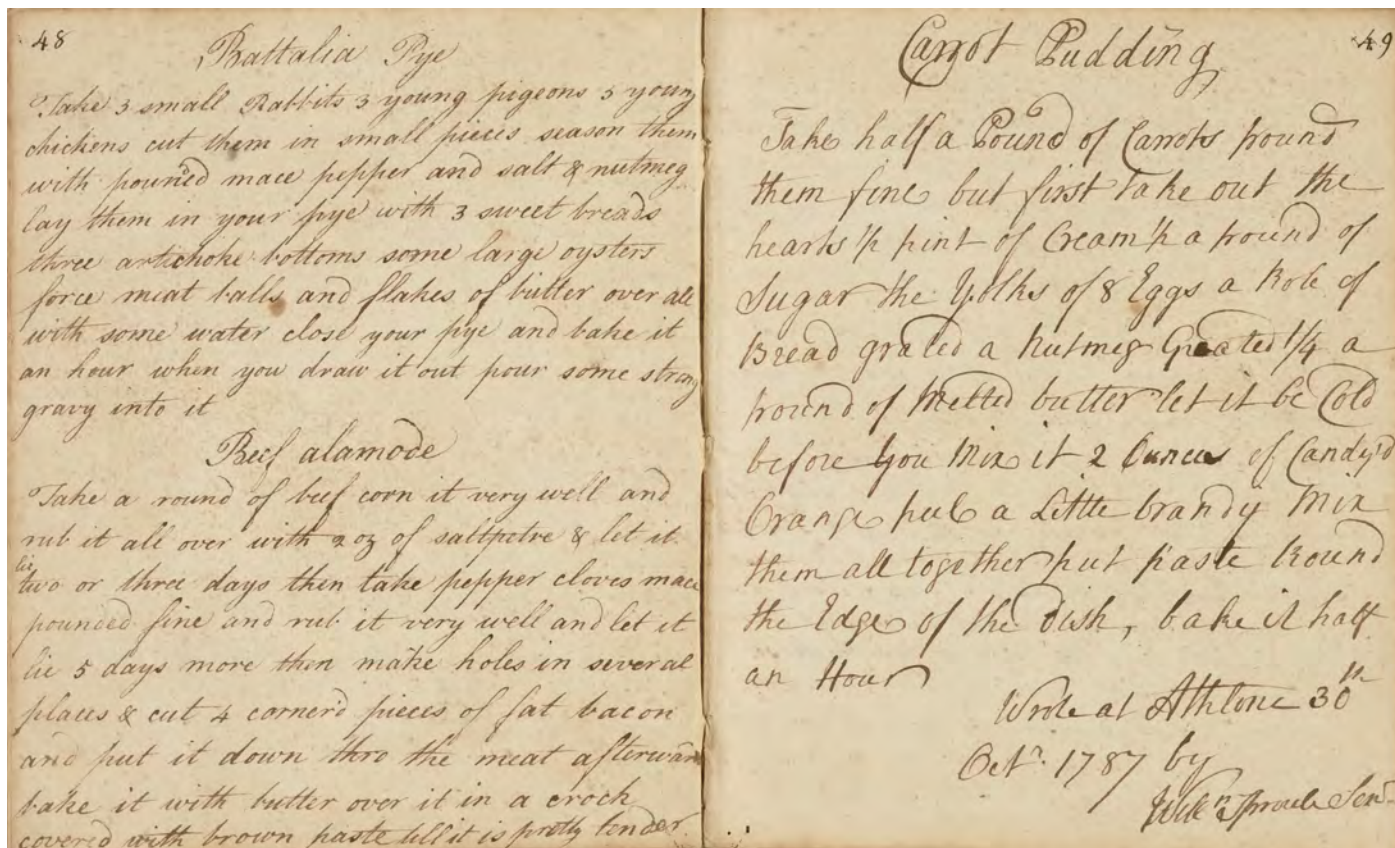 48
Battalia Pye
Take 3 small Rabbits 3 young pigeons 3 young
chickens cut them in small pieces season them
with poun'd mace pepper and salt & nutmeg
lay them in your pye with 3 sweet breads
three artichoke bottoms some large oysters
force meat balls and flakes of butter over all
with some water close your pye and bake it
an hour when you draw it out pour some strong
gravy into it
Beef alamode
Take a round of beef corn it very well and
rub it all over with 2 oz of saltpetre & let it
lie
two or three days then take pepper cloves mace
pounded fine and rub it very well and let it
lie 5 days more then make holes in several
places & cut 4 corner'd pieces of fat bacon
and put it down thro the meat afterward
bake it with butter over it in a crock
covered with brown paste till it is pretty tender
49
Carrot Pudding
Take half a Pound of Carrots pound
them fine but first take out the
hearts 1/2 pint of Cream 1/2 a pound of
Sugar the Yolks of 8 Eggs a Role of
Bread grated a Nutmeg Greated 1/4 a
pound of Melted butter let it be Cold
before You Mix it 2 Ounces of Candy'd
Orange peel a Little brandy Mix
them all together put paste Round
the Edge of the dish, bake it half
an Hour
Wrote at Athlone 30th
Octr. 1787 by
Willm Sproule Senr